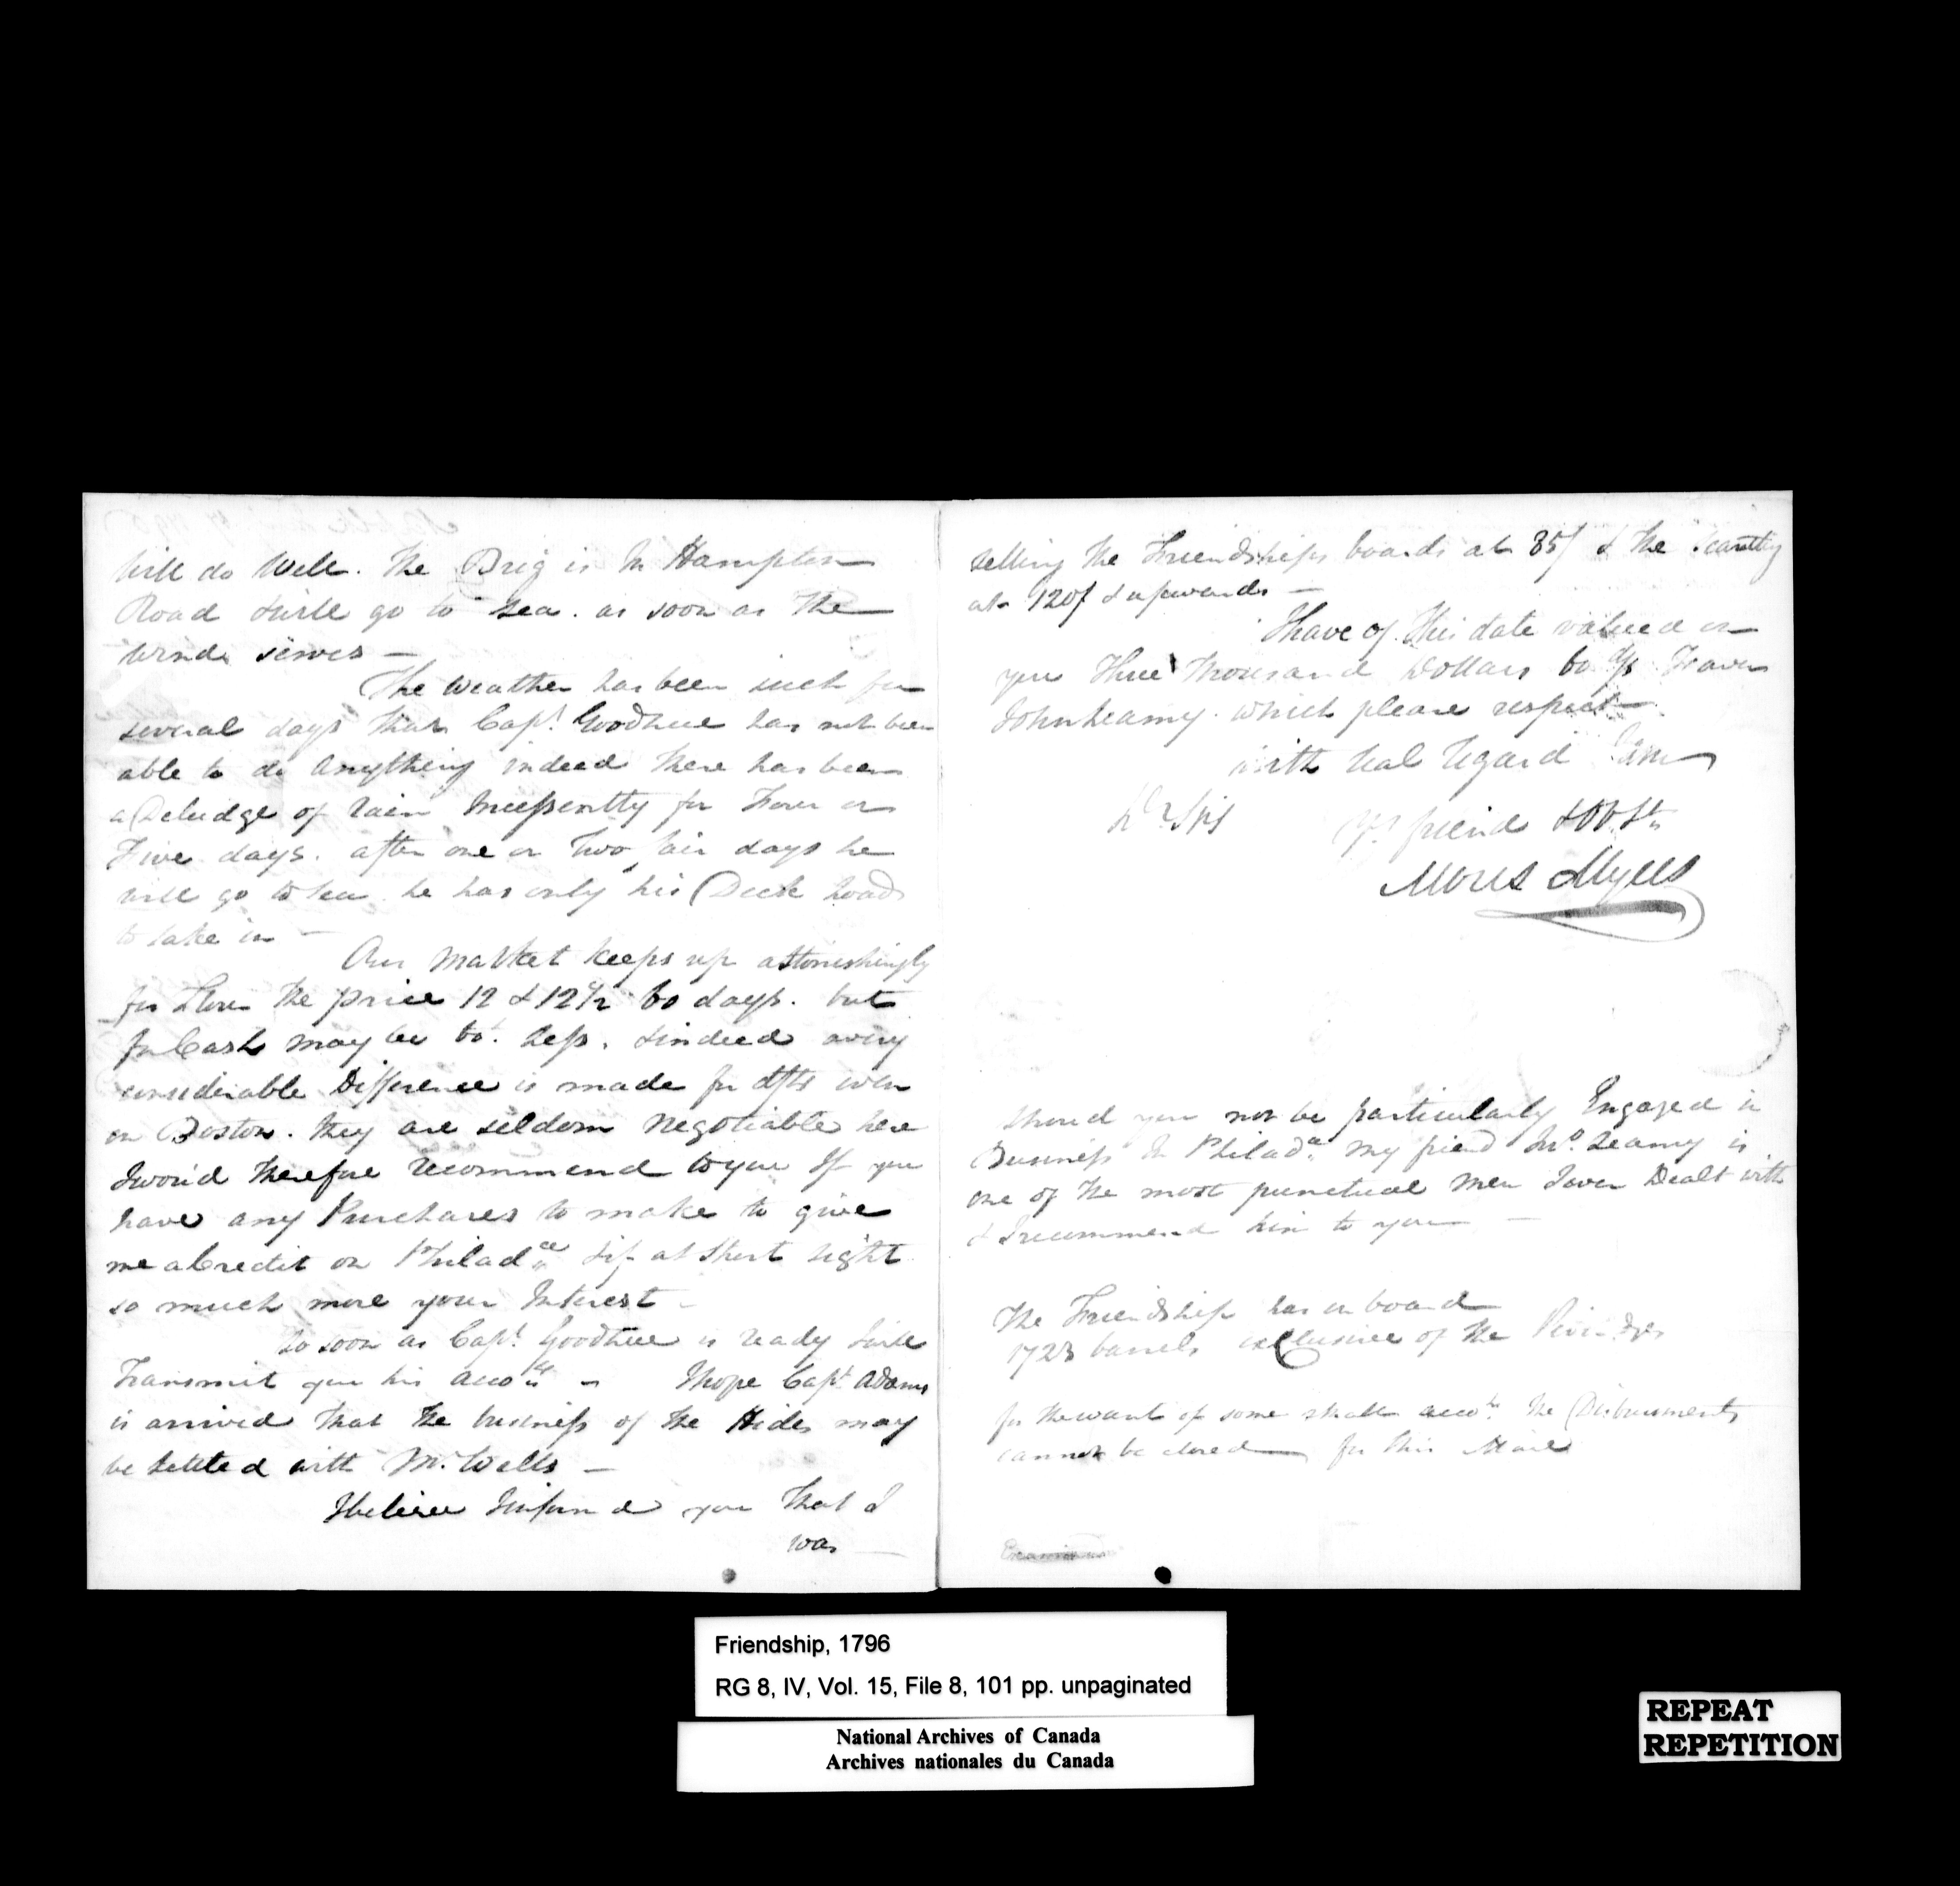 will do Well. The Brig is In Hampton
Road & will go to Sea. as soon as the
Winds serves —
The Weather has been such for
several days that Capt. Goodhue has not been
able to do Anything indeed there has been
a Deludge of rain Incessently for Four or
Five days. after one or Two fair days he
will go to sea he has only his Deck Load
to take in —
Our Market keeps up astonishingly
for Flour the price 12 & 12½ 60 days. but
for Cash may be bot. less. & indeed a very
considerable Difference is made for dfts even
on Boston. they are seldom Negotiable here
I wou'd therefore recommend to you If you
have any Purchases to make to give
me a Credit on Philada. & if at Short sight
so much more your Interest —
So soon as Capt. Goodhue is ready I will
Transmit you his accots. — I hope Capt. Adams
is arrived that the business of the Hides may
be settled with Mr. Wells —
I believe I inform'd you that I
was —
selling the Friendships boards at 85/ & the Scantling
at 120/ & upwards —
I have of this date valued on
you Three Thousand Dollars 60 d/s Favor
John Leamy. which please respect —
with real regard I am
Dr. Sir
Yr. friend & Ob. St.
Moses Myers
Shoud you not be particularly Engaged in
Business In Philada. my friend Jno. Leamy is
one of the most punctual Men I ever Dealt with
& I recommend him to you —
The Friendship has on board
1723 barrels exclusive of the
for the want of some small accots. the Disbursments
cannot be closed for this Mail
Friendship, 1796
RG 8, IV, Vol. 15, File 8, 101 pp. unpaginated
National Archives of Canada
Archives nationales du Canada
REPEAT
REPETITION